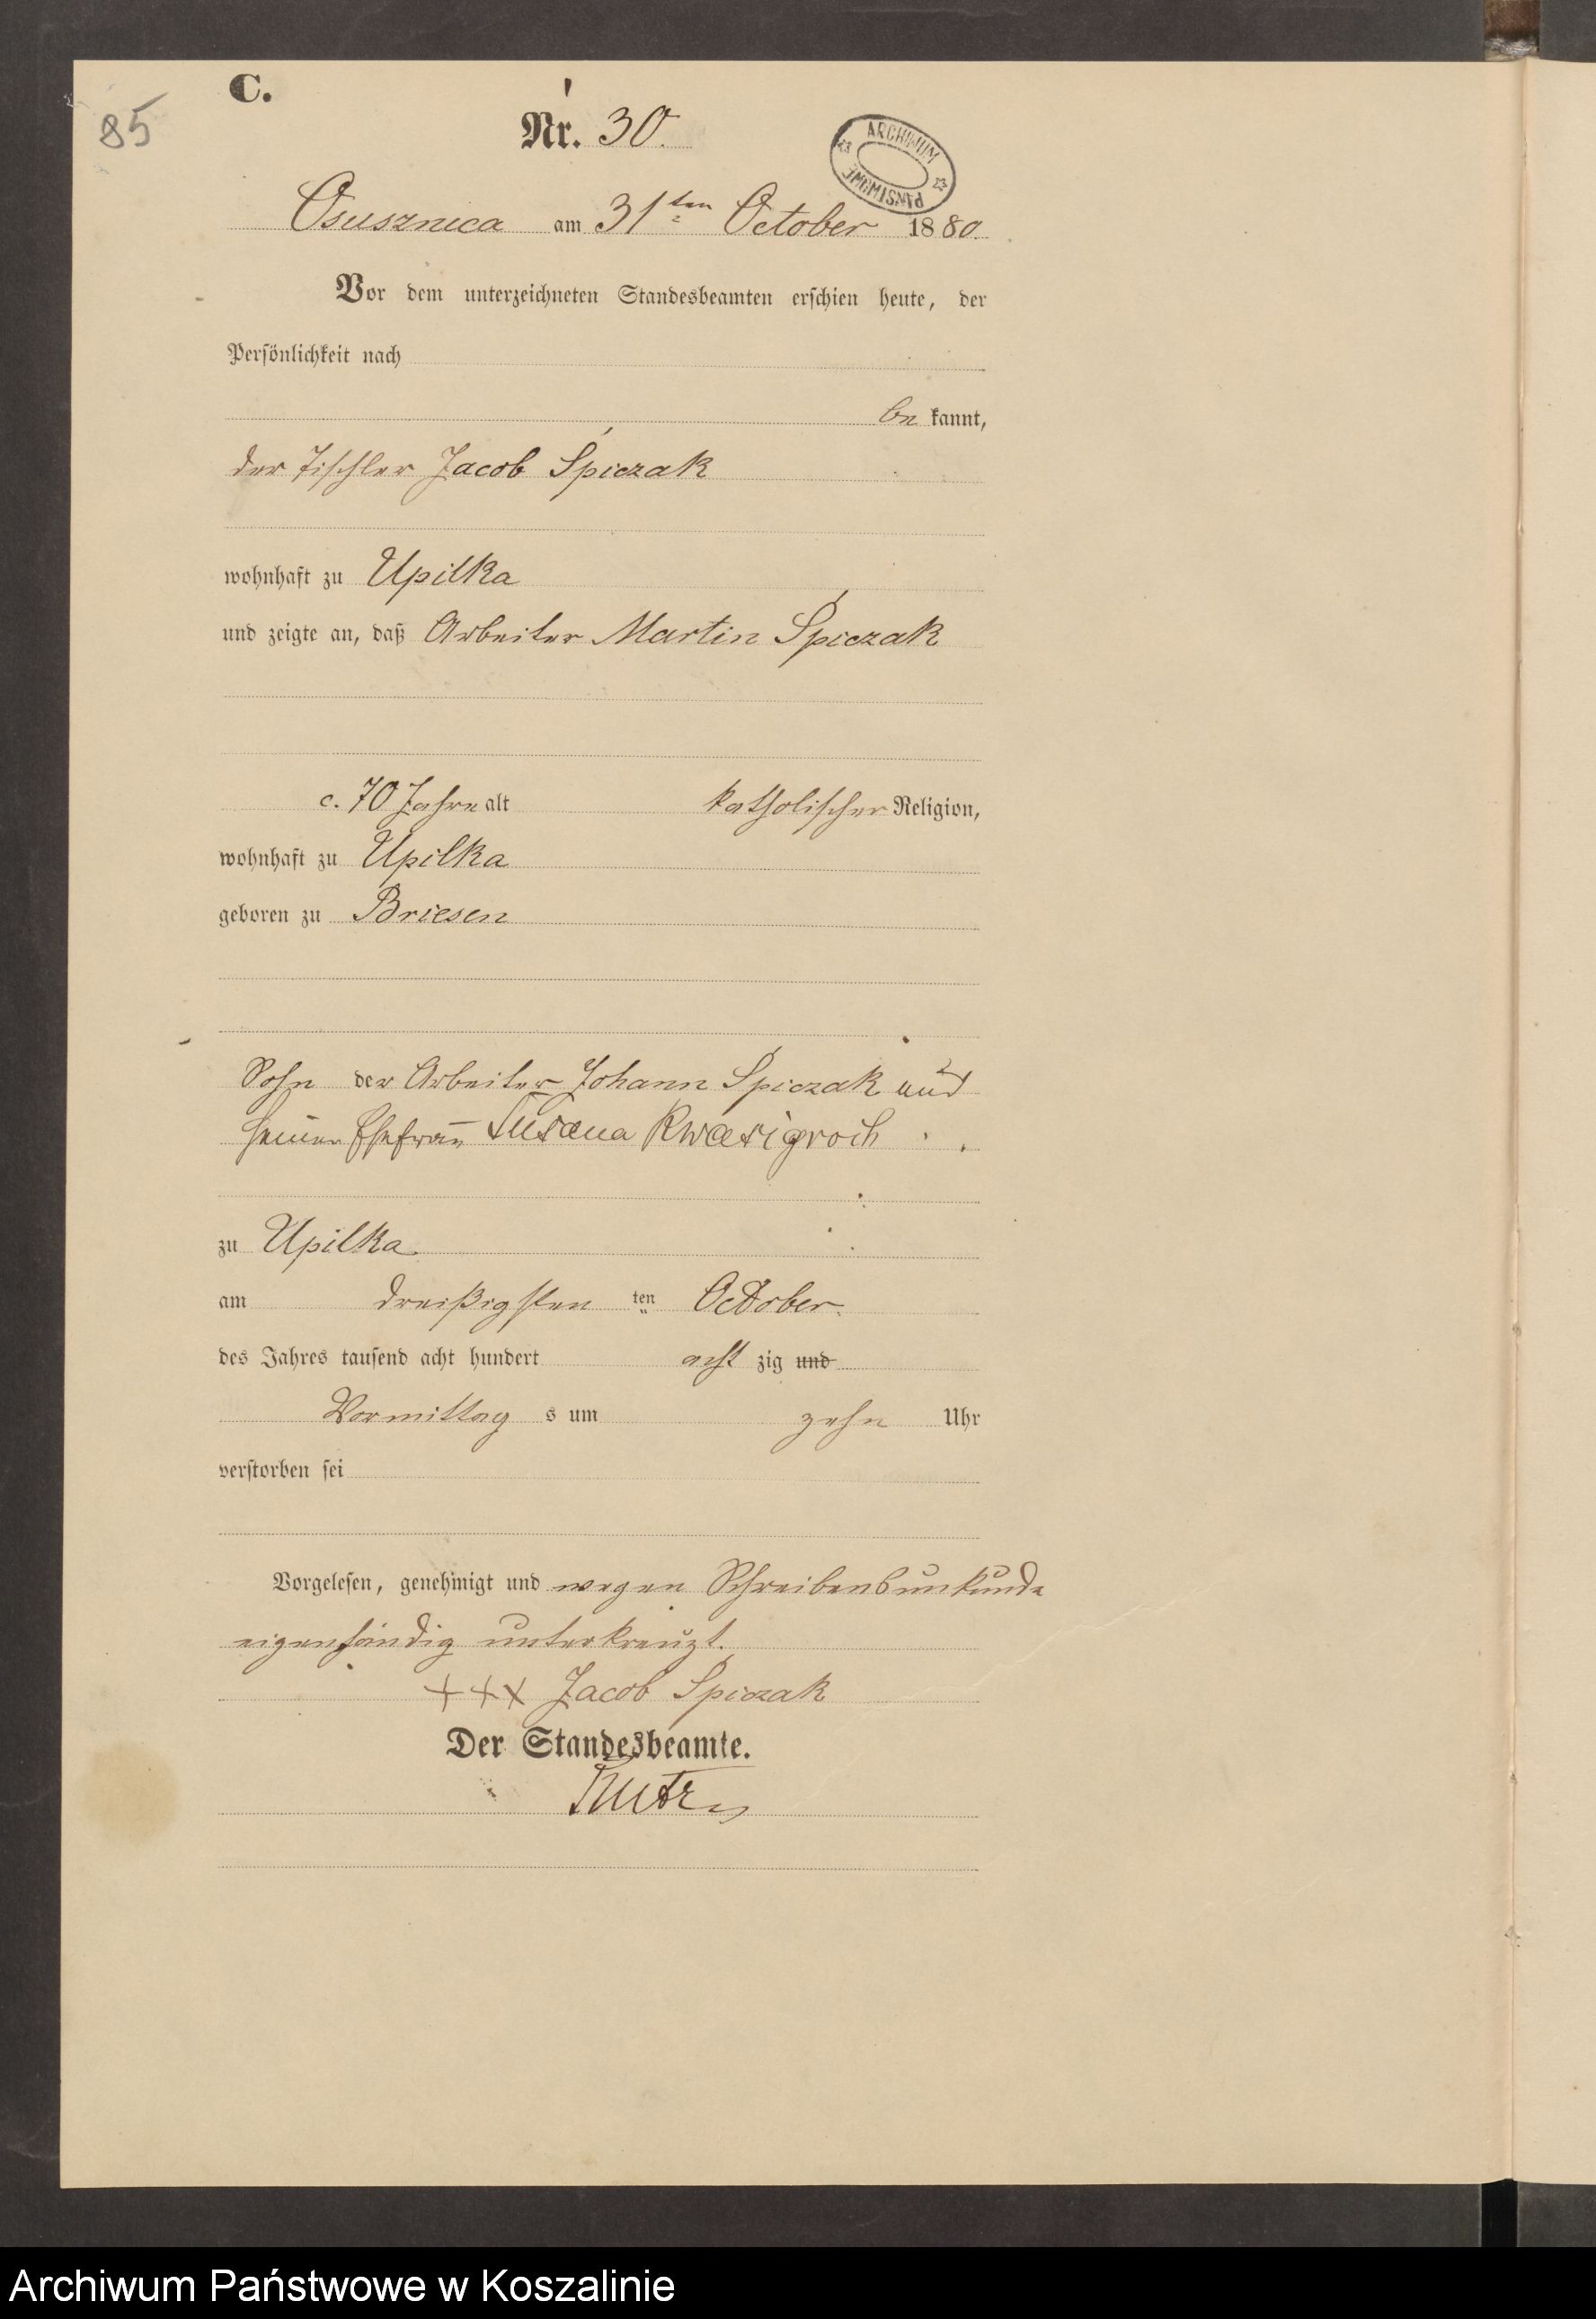 C.
85
Nr. 30.
ARCHIWUM
PAŃSTWOWE
Osusznica am 31ten October 1880.
Vor dem unterzeichneten Standesbeamten erschien heute, der
Persönlichkeit nach
be kannt,
der Tischler Jacob Śpiczak
wohnhaft zu Upilka
und zeigte an, daß Arbeiter Martin Śpiczak
c. 70 Jahre alt katholischer Religion,
wohnhaft zu Upilka
geboren zu Briesen
Sohn der Arbeiter Johann Śpiczak und
seiner Ehefrau Susana Kwasigroch
zu Upilka
am dreißigsten ten October
des Jahres tausend acht hundert acht zig und
Vormittag s um zehn Uhr
verstorben sei
Vorgelesen, genehmigt und wegen Schreibensunkunde
eigenhändig unterkreuzt.
+++ Jacob Śpiczak
Der Standesbeamte.
Archiwum Państwowe w Koszalinie